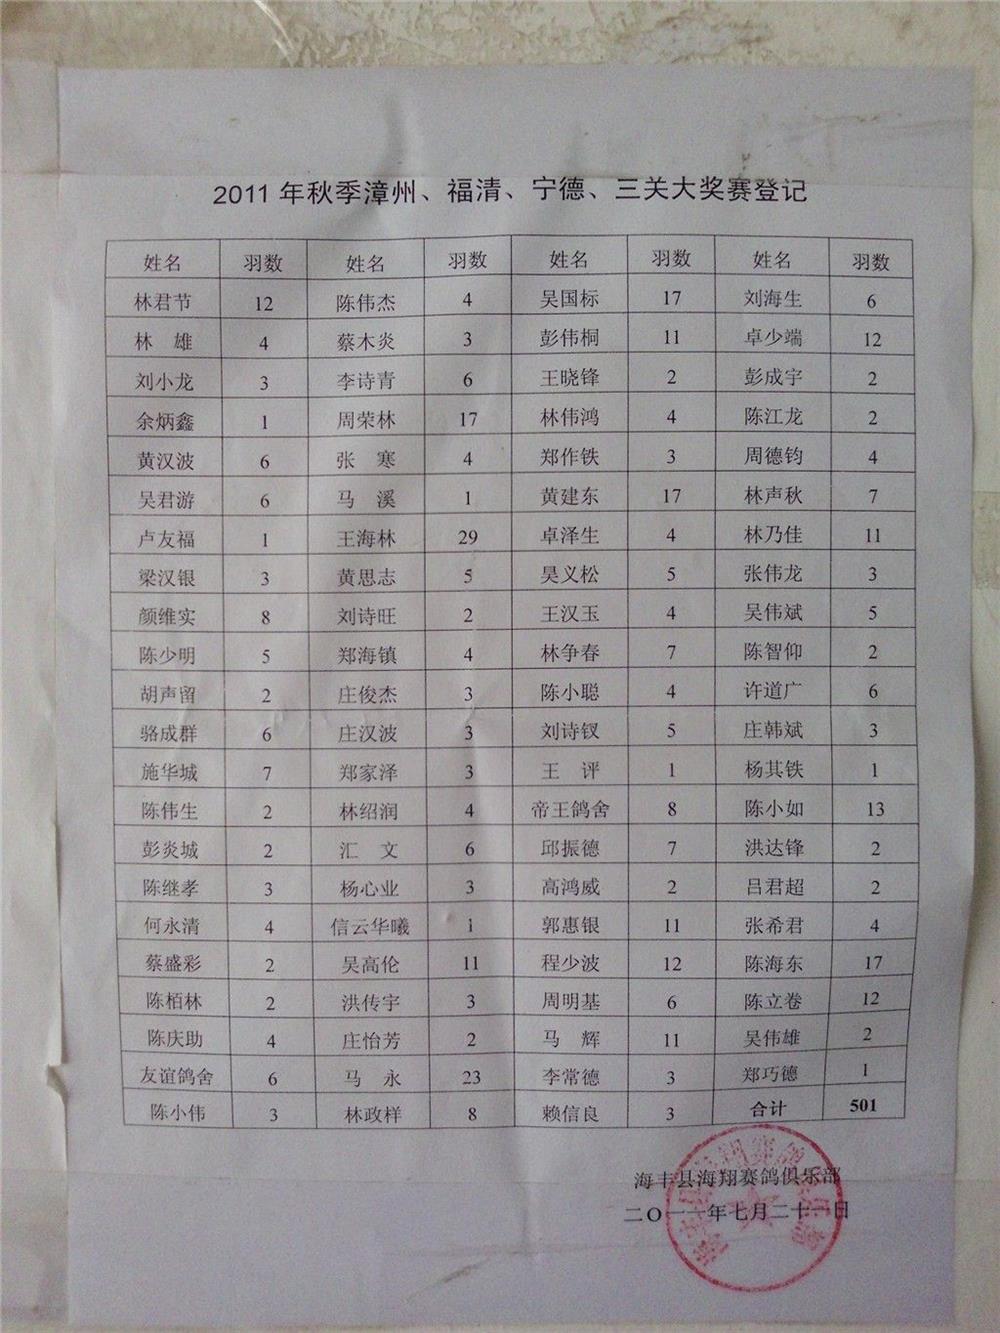 2011年秋季漳州、福清、宁德、三关大奖赛登记
姓名 羽数 姓名 羽数 姓名 羽数 姓名 羽数
林君节 12 陈伟杰 4 吴国标 17 刘海生 6
林 雄 4 蔡木炎 3 彭伟桐 11 卓少端 12
刘小龙 3 李诗青 6 王晓锋 2 彭成宇 2
余炳鑫 1 周荣林 17 林伟鸿 4 陈江龙 2
黄汉波 6 张 寒 4 郑作铁 3 周德钧 4
吴君游 6 马 溪 1 黄建东 17 林声秋 7
卢友福 1 王海林 29 卓泽生 4 林乃佳 11
梁汉银 3 黄思志 5 吴义松 5 张伟龙 3
颜维实 8 刘诗旺 2 王汉玉 4 吴伟斌 5
陈少明 5 郑海镇 4 林争春 7 陈智仰 2
胡声留 2 庄俊杰 3 陈小聪 4 许道广 6
骆成群 6 庄汉波 3 刘诗钗 5 庄韩斌 3
施华城 7 郑家泽 3 王 评 1 杨其铁 1
陈伟生 2 林绍润 4 帝王鸽舍 8 陈小如 13
彭炎城 2 汇 文 6 邱振德 7 洪达锋 2
陈继孝 3 杨心业 3 高鸿威 2 吕君超 2
何永清 4 信云华曦 1 郭惠银 11 张希君 4
蔡盛彩 2 吴高伦 11 程少波 12 陈海东 17
陈栢林 2 洪传宇 3 周明基 6 陈立卷 12
陈庆助 4 庄怡芳 2 马 辉 11 吴伟雄 2
友谊鸽舍 6 马 永 23 李常德 3 郑巧德 1
陈小伟 3 林政样 8 赖信良 3 合计 501
海丰县海翔赛鸽俱乐部
二〇一一年七月二十一日